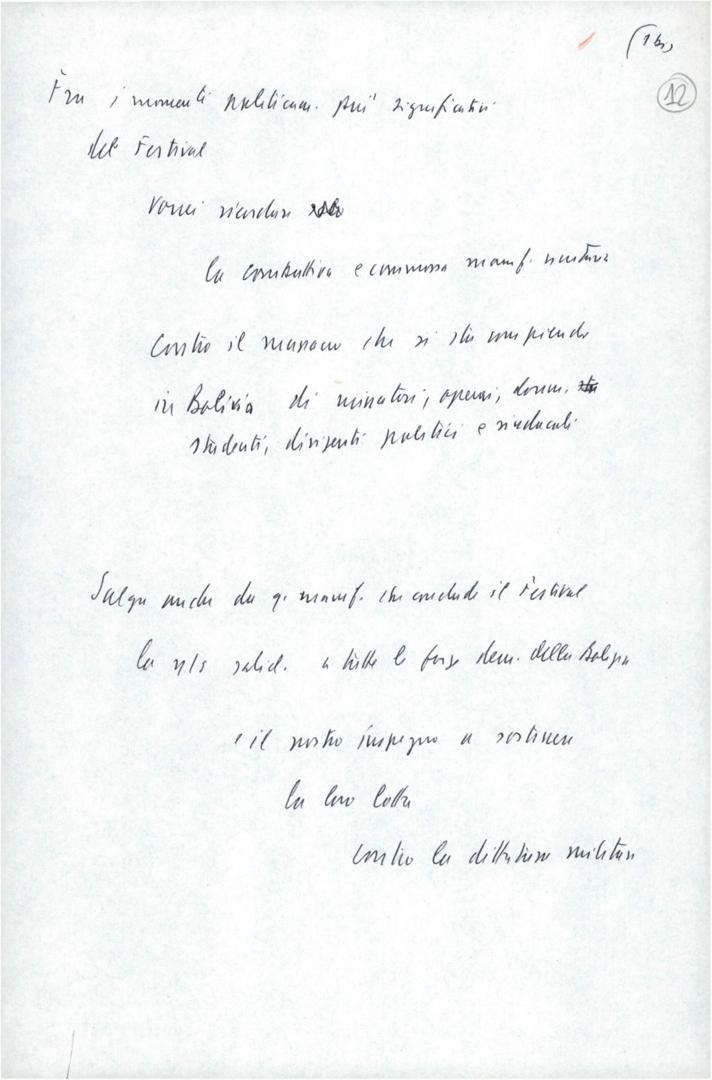 (1 bis
12
Fra i momenti politicam. più significativi
del Festival
vorrei ricordare
la combattiva e commossa manif.
contro il massacro che si sta compiendo
in Bolivia di minatori, operai, donne,
studenti, dirigenti politici e sindacali
Salga anche da q. manif. che conclude il Festival
la n/s solid. a tutte le forze dem. della
e il nostro impegno a sostenere
la loro lotta
contro la dittatura militare